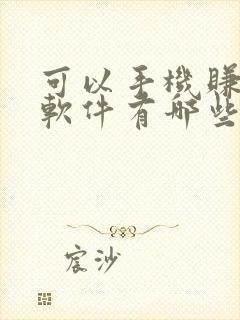 可以手機賺
軟件有哪些
宸沙